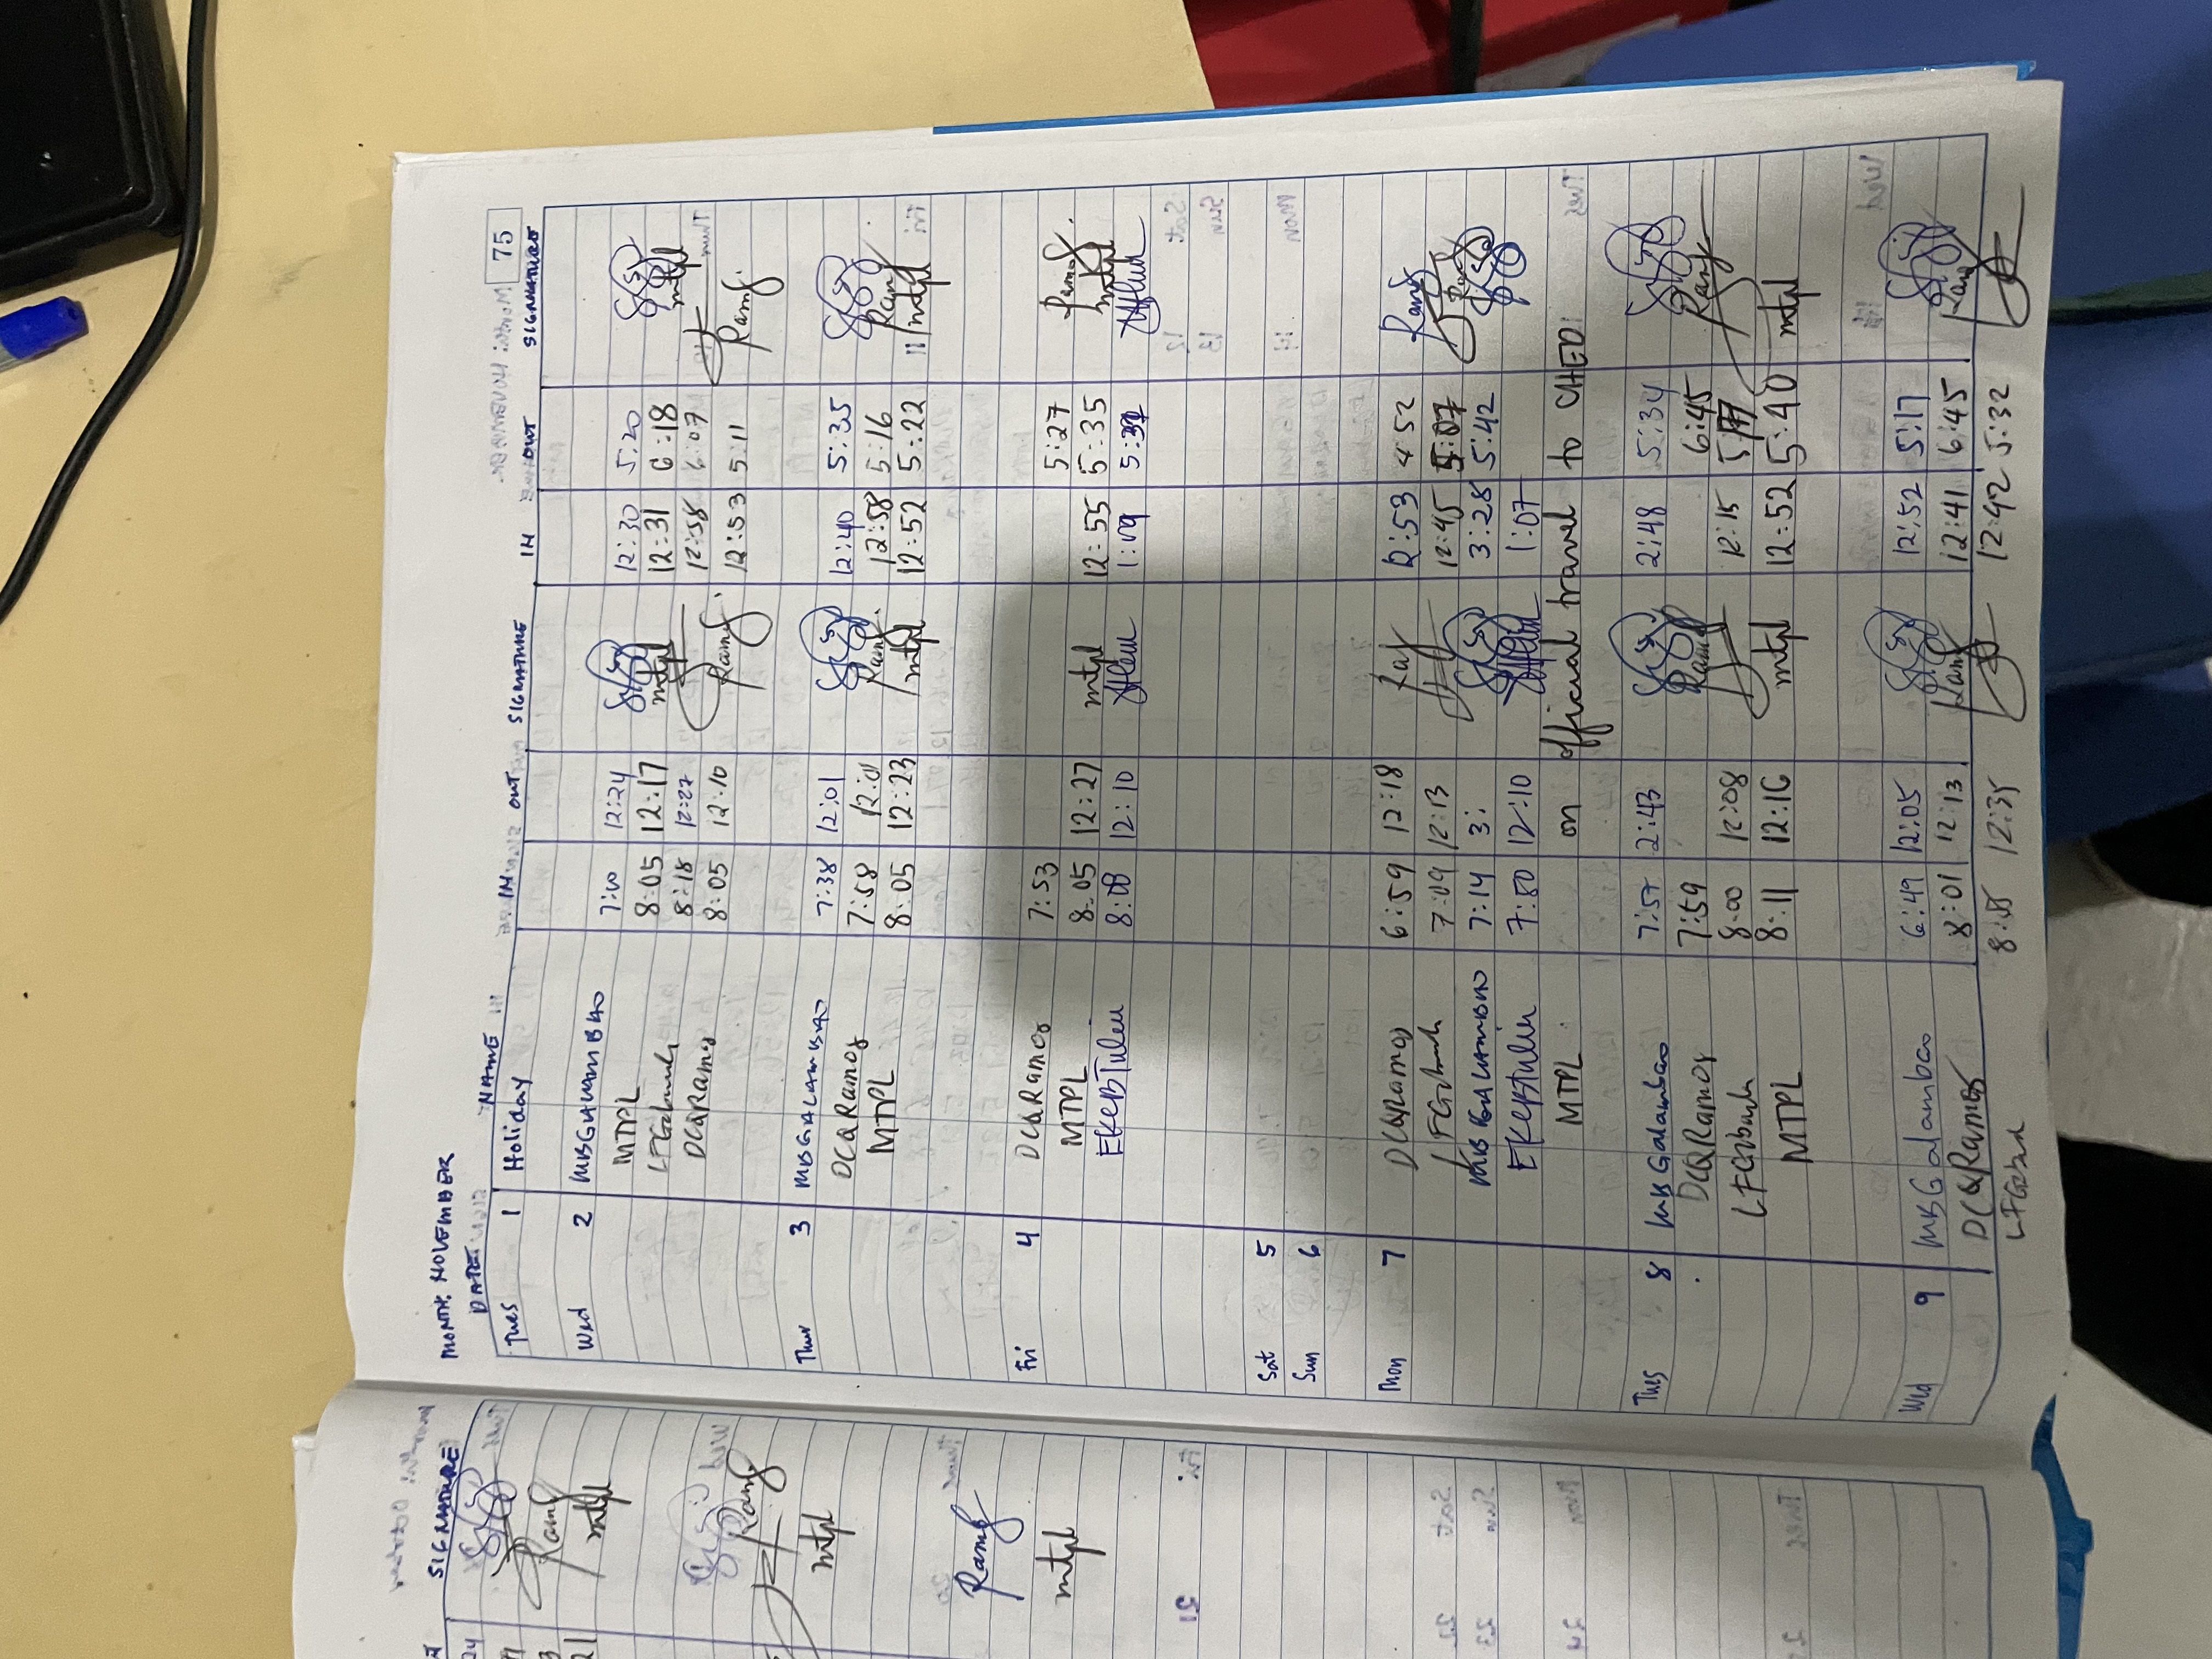 75
MONTH: NOVEMBER
DATE NAME IN OUT SIGNATURE IN OUT SIGNATURE
Tues 1 Holiday
Wed 2 MBGALAMBAO 7:00 12:24 12:30 5:20
MTPL 8:05 12:17 mtpl 12:31 6:18 mtpl
8:18 12:27 12:58 6:07
DCQRamos 8:05 12:10 Ramos 12:53 5:11 Ramos
Thur 3 MBGALAMBAO 7:38 12:01 12:40 5:35
DCQRamos 7:58 12:01 Ramos 12:58 5:16 Ramos
MTPL 8:05 12:23 mtpl 12:52 5:22 mtpl
Fri 4 DCQRamos 7:53 5:27 Ramos
MTPL 8:05 12:27 mtpl 12:55 5:35 mtpl
EKEPBTulin 8:08 12:10 1:09
Sat 5
Sun 6
Mon 7 DCQRamos 6:59 12:18 12:53 4:52 Ramos
7:09 12:13 12:45 5:07
MBGALAMBAO 7:14 3: 3:28 5:42
12:10 1:07
MTPL on official travel to CHED
Tues 8 MBGalambao 7:57 2:43 2:48 5:34
DCQRamos 7:59 Ramos 6:45 Ramos
8:00 12:08 12:15
MTPL 8:11 12:16 mtpl 12:52 5:40 mtpl
Wed 9 MBGalambao 6:49 12:05 12:52 5:17
DCQRamos 8:01 12:13 Ramos 12:41 6:45 Ramos
12:35 12:42 5:32
SIGNATURE
Ramos
mtpl
Ramos
mtpl
Ramos
mtpl